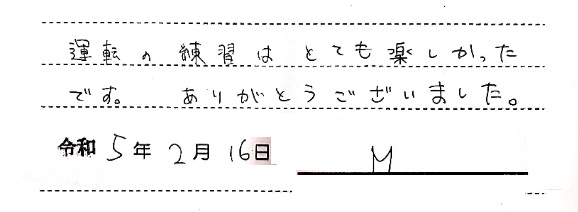 運転の練習はとても楽しかった
です。 ありがとうございました。
令和5年2月16日 M